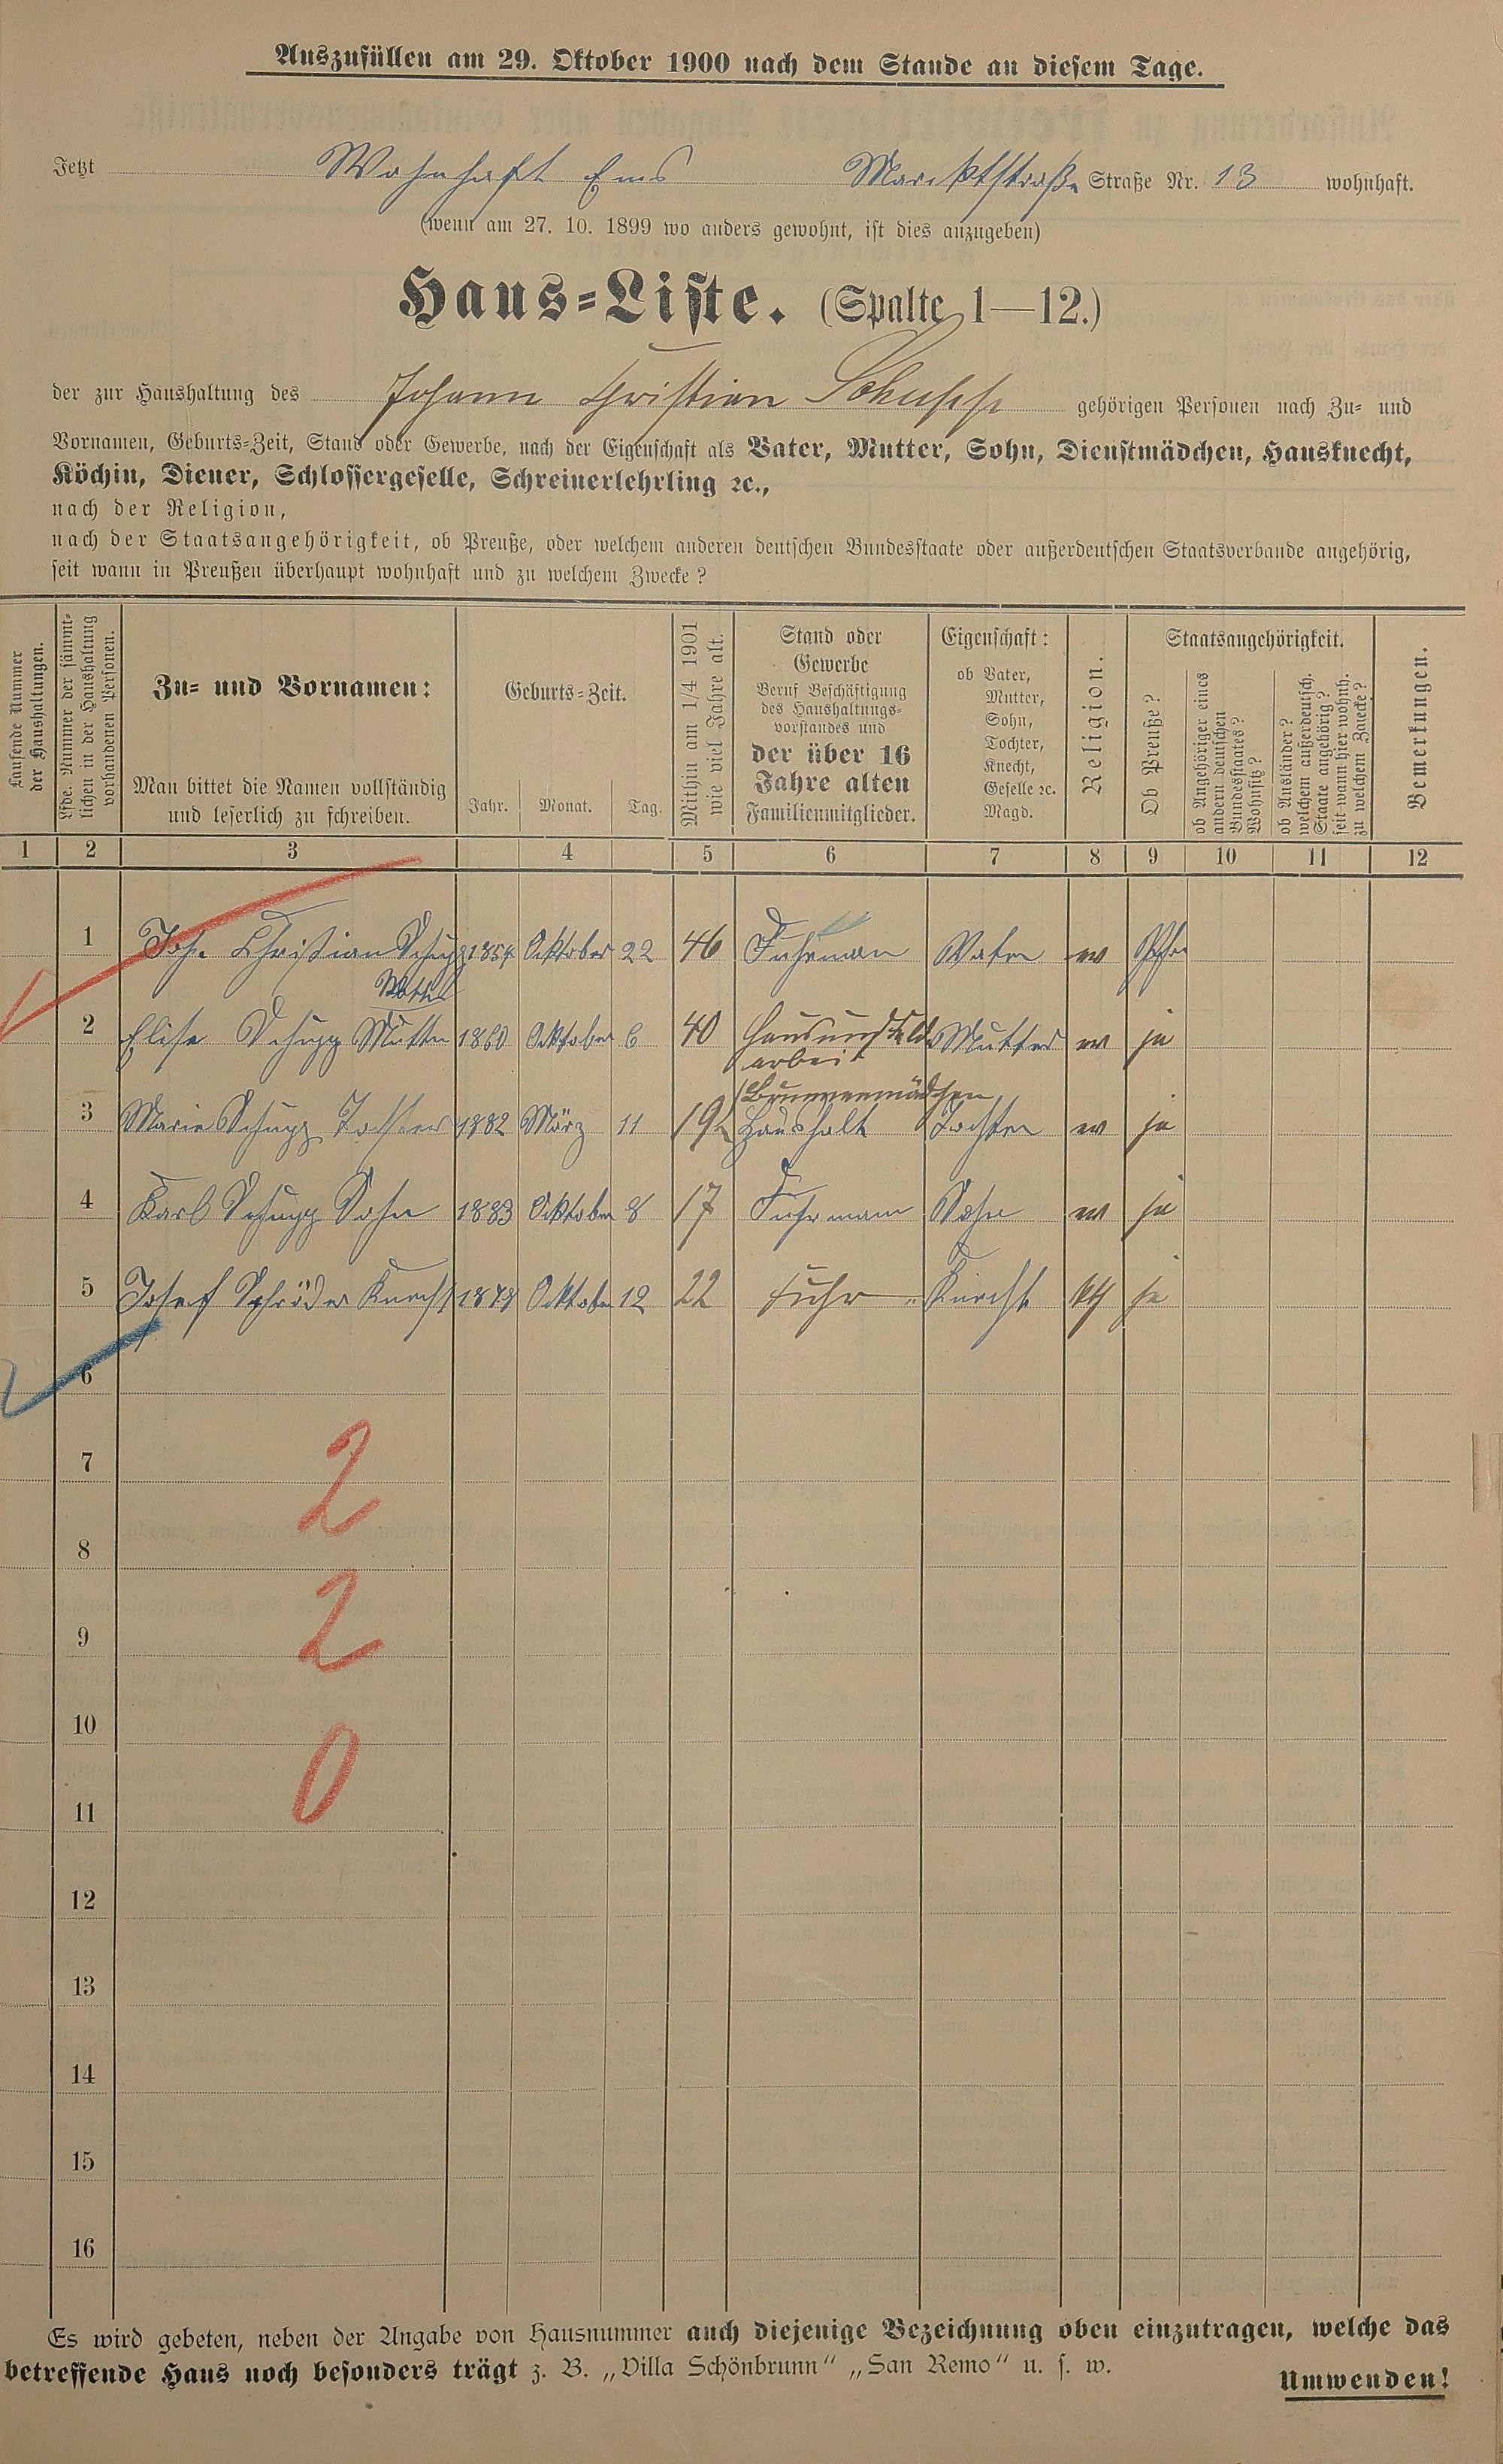 Auszufüllen am 29. Oktober 1900 nach dem Stande an diesem Tage.
Jetzt Wohnhaft Ems Marcktstraße Straße Nr. 13 wohnhaft.
(wenn am 27. 10. 1899 wo anders gewohnt, ist dies anzugeben)
Haus-Liste. (Spalte 1—12.)
der zur Haushaltung des Johann Christian Schupp gehörigen Personen nach Zu- und
Vornamen, Geburts-Zeit, Stand oder Gewerbe, nach der Eigenschaft als Vater, Mutter, Sohn, Dienstmädchen, Hausknecht,
Köchin, Diener, Schlossergeselle, Schreinerlehrling ꝛc.,
nach der Religion,
nach der Staatsangehörigkeit, ob Preuße, oder welchem anderen deutschen Bundesstaate oder außerdeutschen Staatsverbande angehörig,
seit wann in Preußen überhaupt wohnhaft und zu welchem Zwecke?
Laufende Nummer
der Haushaltungen.
Lfde. Nummer der sämmt-
lichen in der Haushaltung
vorhandenen Personen.
Zu- und Vornamen:
Man bittet die Namen vollständig
und leserlich zu schreiben.
Geburts-Zeit.
Jahr. Monat. Tag.
Mithin am 1/4 1901
wie viel Jahre alt.
Stand oder
Gewerbe
Beruf Beschäftigung
des Haushaltungs-
vorstandes und
der über 16
Jahre alten
Familienmitglieder.
Eigenschaft:
ob Vater,
Mutter,
Sohn,
Tochter,
Knecht,
Geselle ꝛc.
Magd.
Religion.
Staatsangehörigkeit.
Ob Preuße?
ob Angehöriger eines
andern deutschen
Bundesstaates?
Wohnsitz?
ob Ausländer?
welchem außerdeutsch.
Staate angehörig?
seit wann hier wohnh.
zu welchem Zwecke?
Bemerkungen.
1 2 3 4 5 6 7 8 9 10 11 12
1 Joh. Christian Schupp 1854 Oktober 22 46 Fuhrman Vater
2 Elise Schupp Mutter 1860 Oktober 6 40 Haus und Feld Mutter ja
arbeit
Brunnenmädchen
3 Marie Schupp Tochter 1882 März 11 19 Haushalt Tochter ja
4 Karl Schupp Sohn 1883 Oktober 8 17 Fuhrmann Sohn ja
5 Josef Schröder Knecht 1878 Oktober 12 22 Fuhr Knecht kth ja
6
7
2
8
2
9
10
0
11
12
13
14
15
16
Es wird gebeten, neben der Angabe von Hausnummer auch diejenige Bezeichnung oben einzutragen, welche das
betreffende Haus noch besonders trägt z. B. „Villa Schönbrunn“ „San Remo“ u. s. w.
Umwenden!